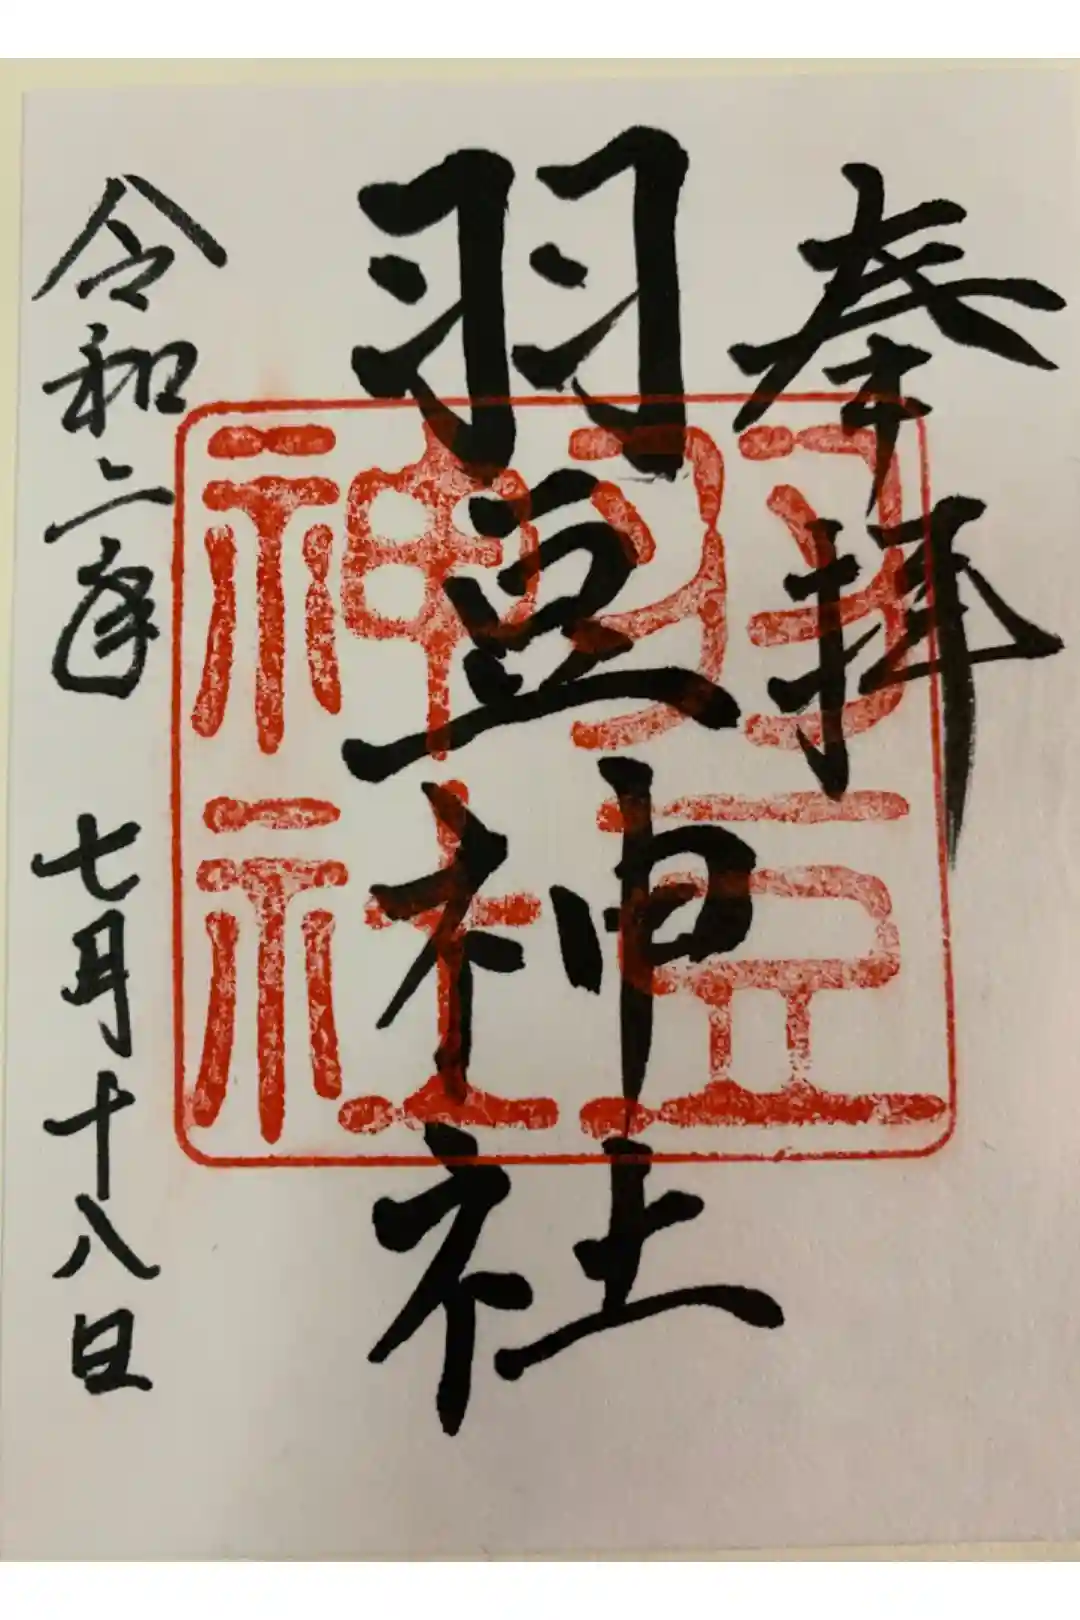 奉拝
羽豆神社
羽豆神社
令和二年 七月十八日